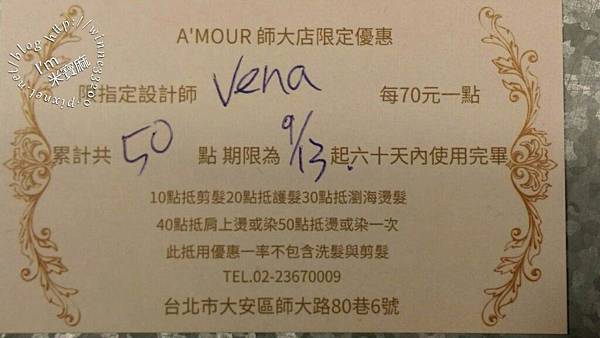 A'MOUR 師大店限定優惠
限指定設計師 Vena 每70元一點
累計共 50 點 期限為 9/13 起六十天內使用完畢
10點抵剪髮20點抵護髮30點抵瀏海燙髮
40點抵肩上燙或染50點抵燙或染一次
此抵用優惠一率不包含洗髮與剪髮
TEL.02-23670009
台北市大安區師大路80巷6號
I'm
米寶麻